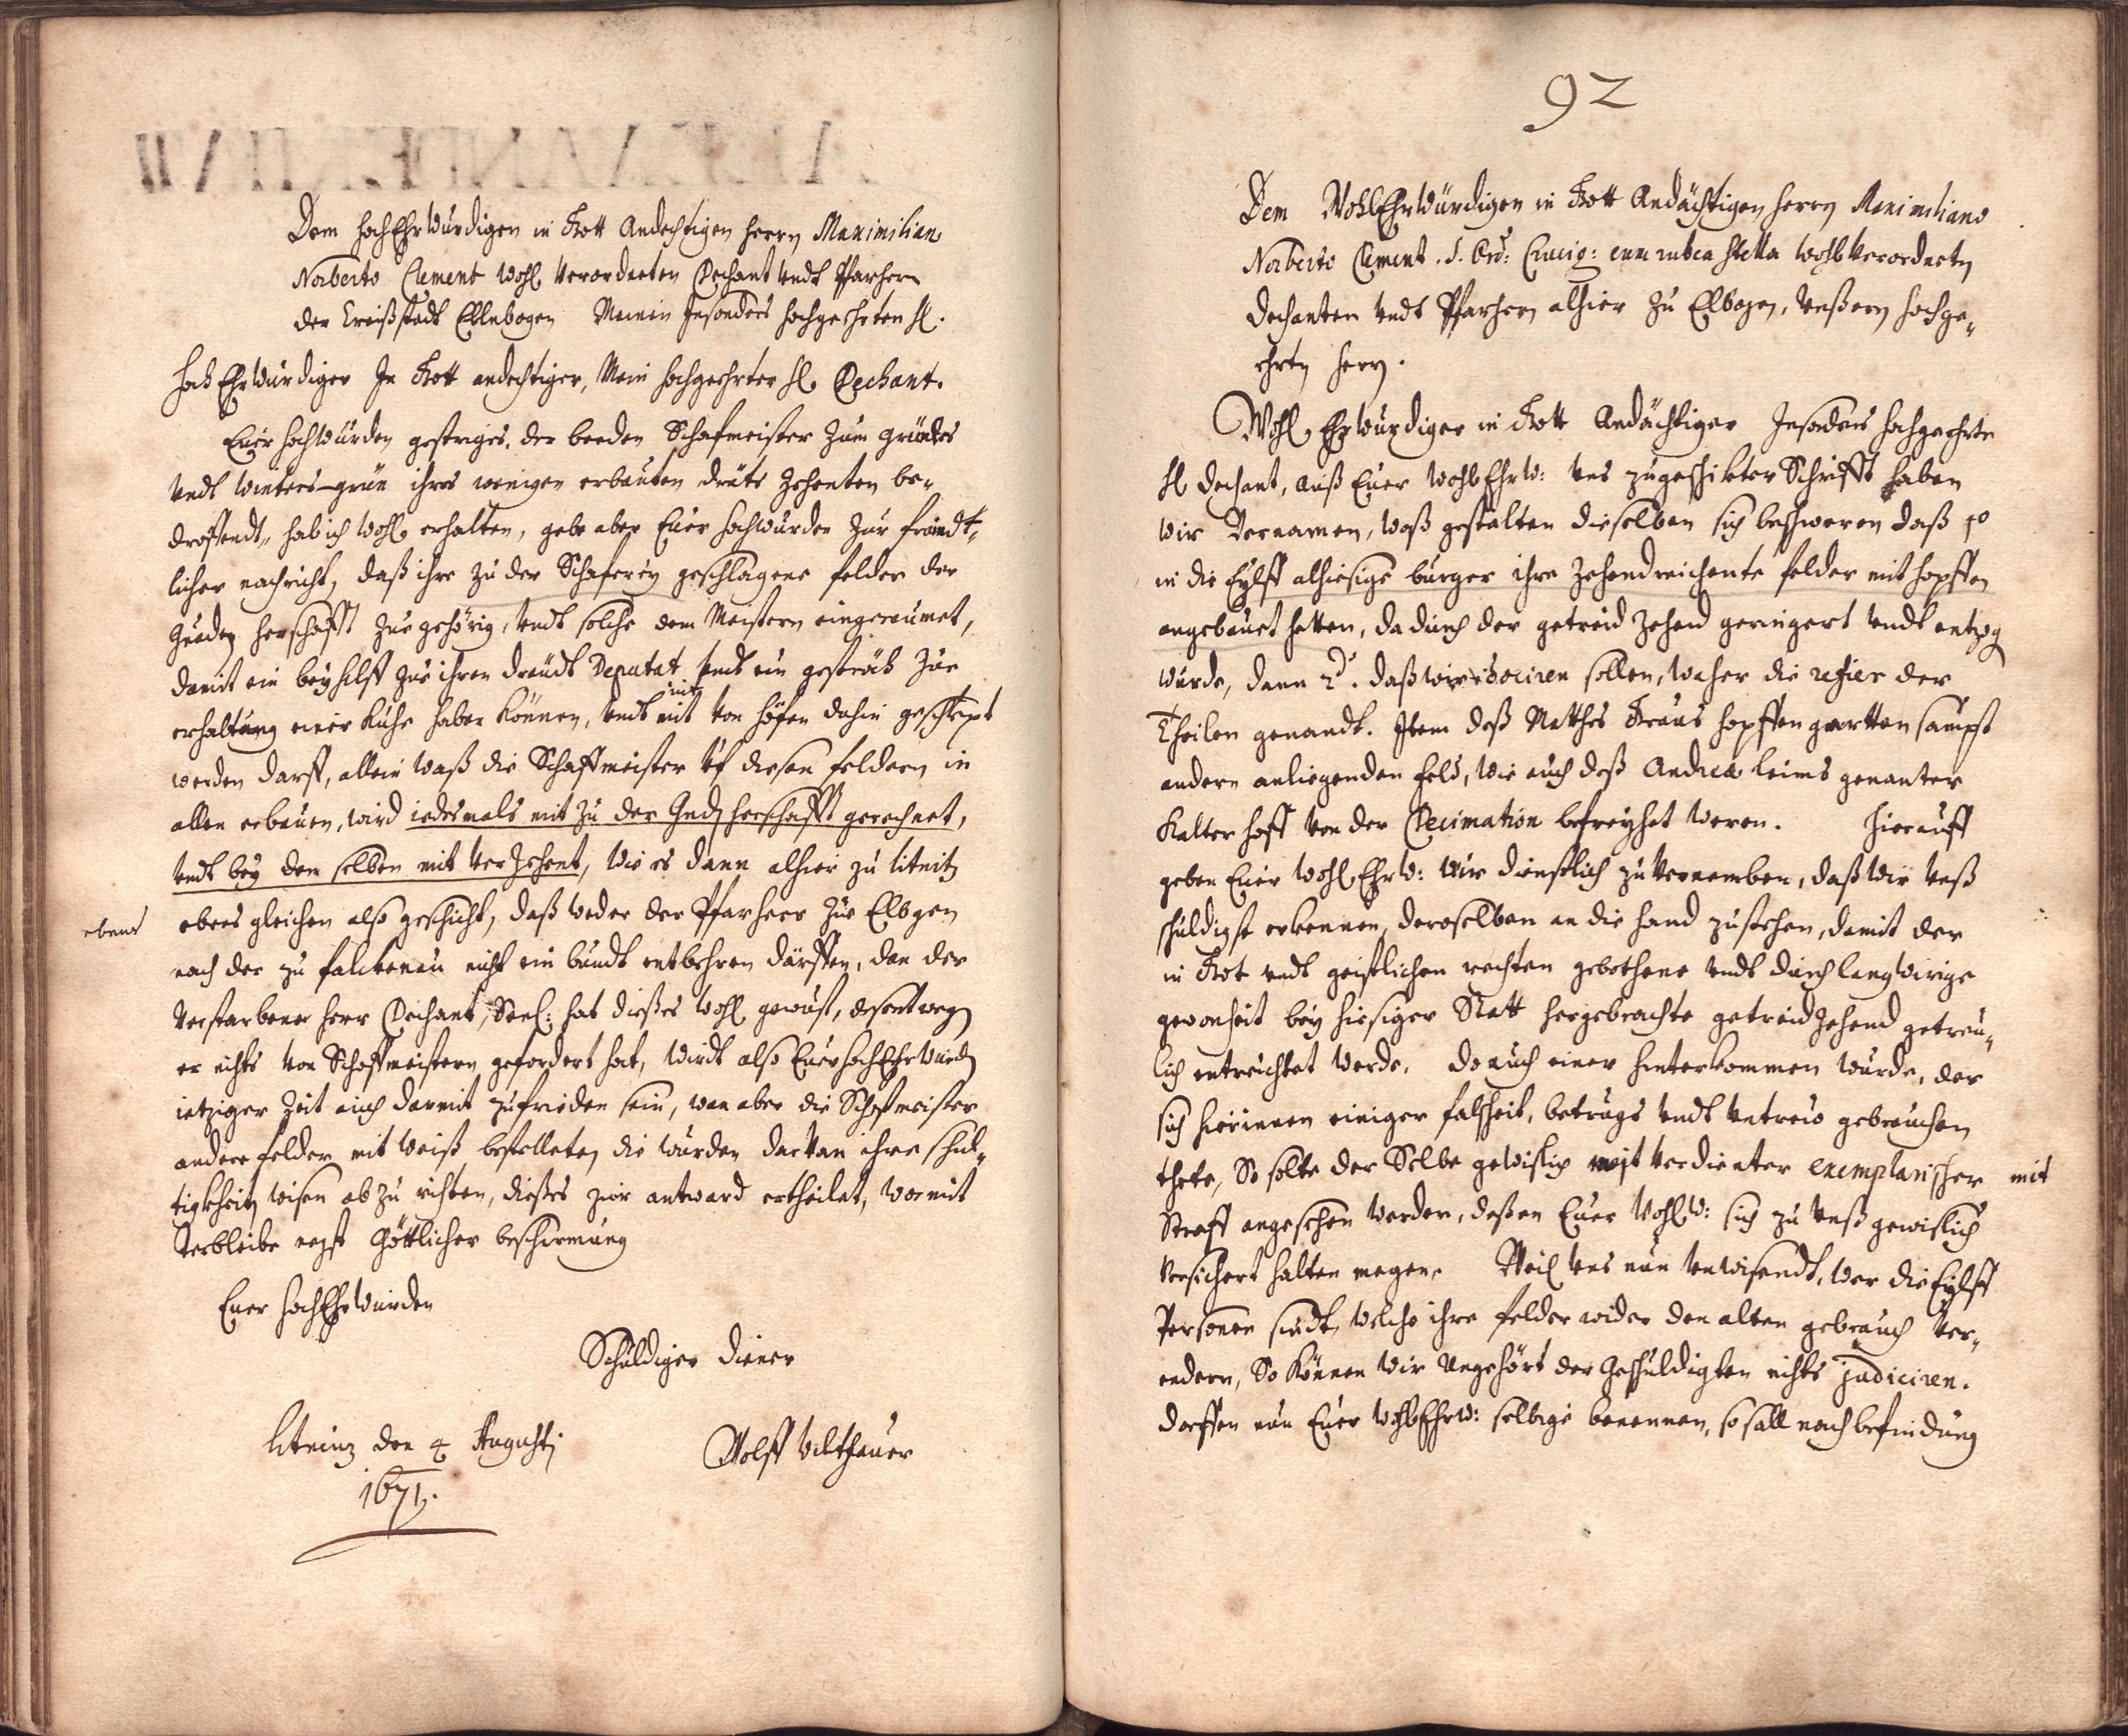 Dem HochEhrwürdigen in Gott Andechtigen Herrn Maximilian
Norberto Clement wohl verordneten Dechant undt Pfarherrn
der Creißstadt Ellnbogen Meinen Insonders hochgeehrten H.
HochEhrwürdiger In Gott andechtiger, Mein hochgeehrter H. Dechant.
Euer Hochwürden gestriges, der beeden Schafmeister zum
undt Winters-grün ihres wenigen erbauten dräts Zehenten be-
dreffendt, hab ich wohl erhalten, gebe aber Euer Hochwürden zur freundt-
licher nachricht, daß ihre zu der Schaferey geschlagene felder der
Gnedig Herschafft zue gehörig, undt solche dem Meistern eingereumet,
damit ein beyhilff zue ihren dreudt Deputat undt ein gesträch zur
erhaltung einer Kuhe haben können, undt nit von höfen dahin geschlept
nit
werden darff, allein waß die Schaffmeister uf diesen feldern in
allen erbauen, wird iedesmals mit zu der Gnd Herschafft gerechnet,
undt bey dem selben mit verzehent, wie es dann alhier zu Litnitz
ebens
ebens gleichen also geschicht, daß weder der Pfarherr zue Elbogen
noch der zu falckenau nicht ein bundt entbehren därffen, dan der
verstorbener Herr Dechant, Seel: hat dießes wohl gewust, desentwegen
er nichts von Schaffmeistern gefordert hat, wirdt also Euer HochEhrwürd
ietziger Zeit auch darmit zufrieden sein, wan aber die Schafmeister
andere felder mit weiß bestelleten, die wurden darvan ihre schul-
tigkheit wisen ab zu richten, dießes zur antward ertheilet, wormit
Verbleibe nezst Göttlicher beschirmung
Euer HochEhrwürden
Schuldiger diener
Litnitz den 4 Augusti
Wolff
1671.
92
Dem WohlEhrwürdigen in Gott Andächtigen Herrn Maximiliano
Norberto Clement. S. Ord: Crucig: cum rubea stella wohlverordneten
Dechanten undt Pfarherrn alhier zu Elbogen, Unßern hochge-
ehrtn Herrn.
Wohl Ehrwürdiger in Gott Andächtiger Insonders hochgeehrter
H. Dechant, auß Euer WohlEhrw: uns zugeschikter Schrifft haben
wir vernomen, waß gestalten dieselben sich beschweren daß 1o
in die Eylff alhiesige burger ihre Zehendreichente felder mit hopffen
angebauet hetten, dadurch der getreid Zehend geringert undt entzogen
wurde, dann 2do. daß wir sollen, woher die refier der
Theilen genandt. Item deß Mathes Kraus hopffengartten sampt
andern anliegenden feld, wie auch deß Andreæ Leims genanter
Kalter Hoff von der Decimation befreyhet weren. Hierauff
geben Euer Wohl Ehrw: wir dienstlich zu vernemben, daß wir unß
schuldigst erkennen, deroselben an die hand zustehen, damit der
in Gott undt geistlichen rechten gebothene undt durch langwirige
gewonheit bey hiesiger Statt hergebrachte getreid Zehend getreu-
lich entrichtet werde. Do auch einer hinterkommen wurde, der
sich hierinnen einiger falschheit, betrugs undt untreu gebrauchen
thete, So solte der Selbe gewislich mit verdienter exemplarischer mit
Straff angesehen werden, deßen Euer WohlEhrw: sich zu unß gewislich
versichert halten megen. Weil uns nun unwisendt, wer die Eylff
Personen sindt, welche ihre felder wider den alten gebrauch ver-
endern, So können wir ungehört der Geschuldigten nichts judiciren.
Dörffen nun Euer WohlEhrw: selbige benennen, so soll nach befindung